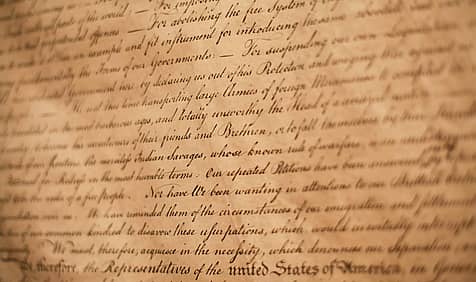 parts of the world : — For imposing
pretended offences : — For abolishing the free System of
an example and fit instrument for introducing the same absolute
the Forms of our Governments : — For suspending our own
Government here, by declaring us out of his Protection and waging
at this time transporting large Armies of foreign Mercenaries to compleat
in the most barbarous ages, and totally unworthy the Head of a civilized
become the executioners of their friends and Brethren, or to fall themselves by their
the merciless Indian Savages, whose known rule of warfare, is an
for Redress in the most humble terms : Our repeated Petitions have been answered
the ruler of a free people. Nor have We been wanting in attentions to our Brittish
over us. We have reminded them of the circumstances of our emigration and settlement
of our common kindred to disavow these usurpations, which, would inevitably interrupt
We must, therefore, acquiesce in the necessity, which denounces our Separation
therefore, the Representatives of the united States of America, in General